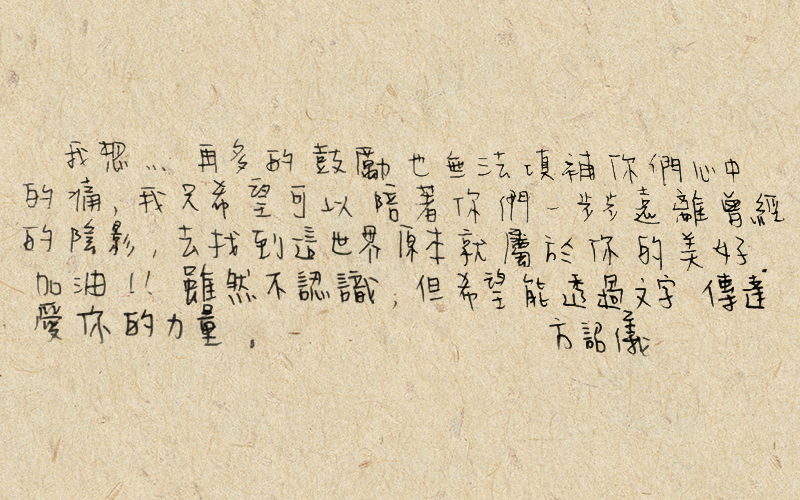 我想... 再多的鼓勵也無法填補你們心中
的痛，我只希望可以陪著你們一步步遠離曾經
的陰影，去找到這世界原本就屬於你的美好.
加油!! 雖然不認識，但希望能透過文字傳達
愛你的力量.
方詔儀